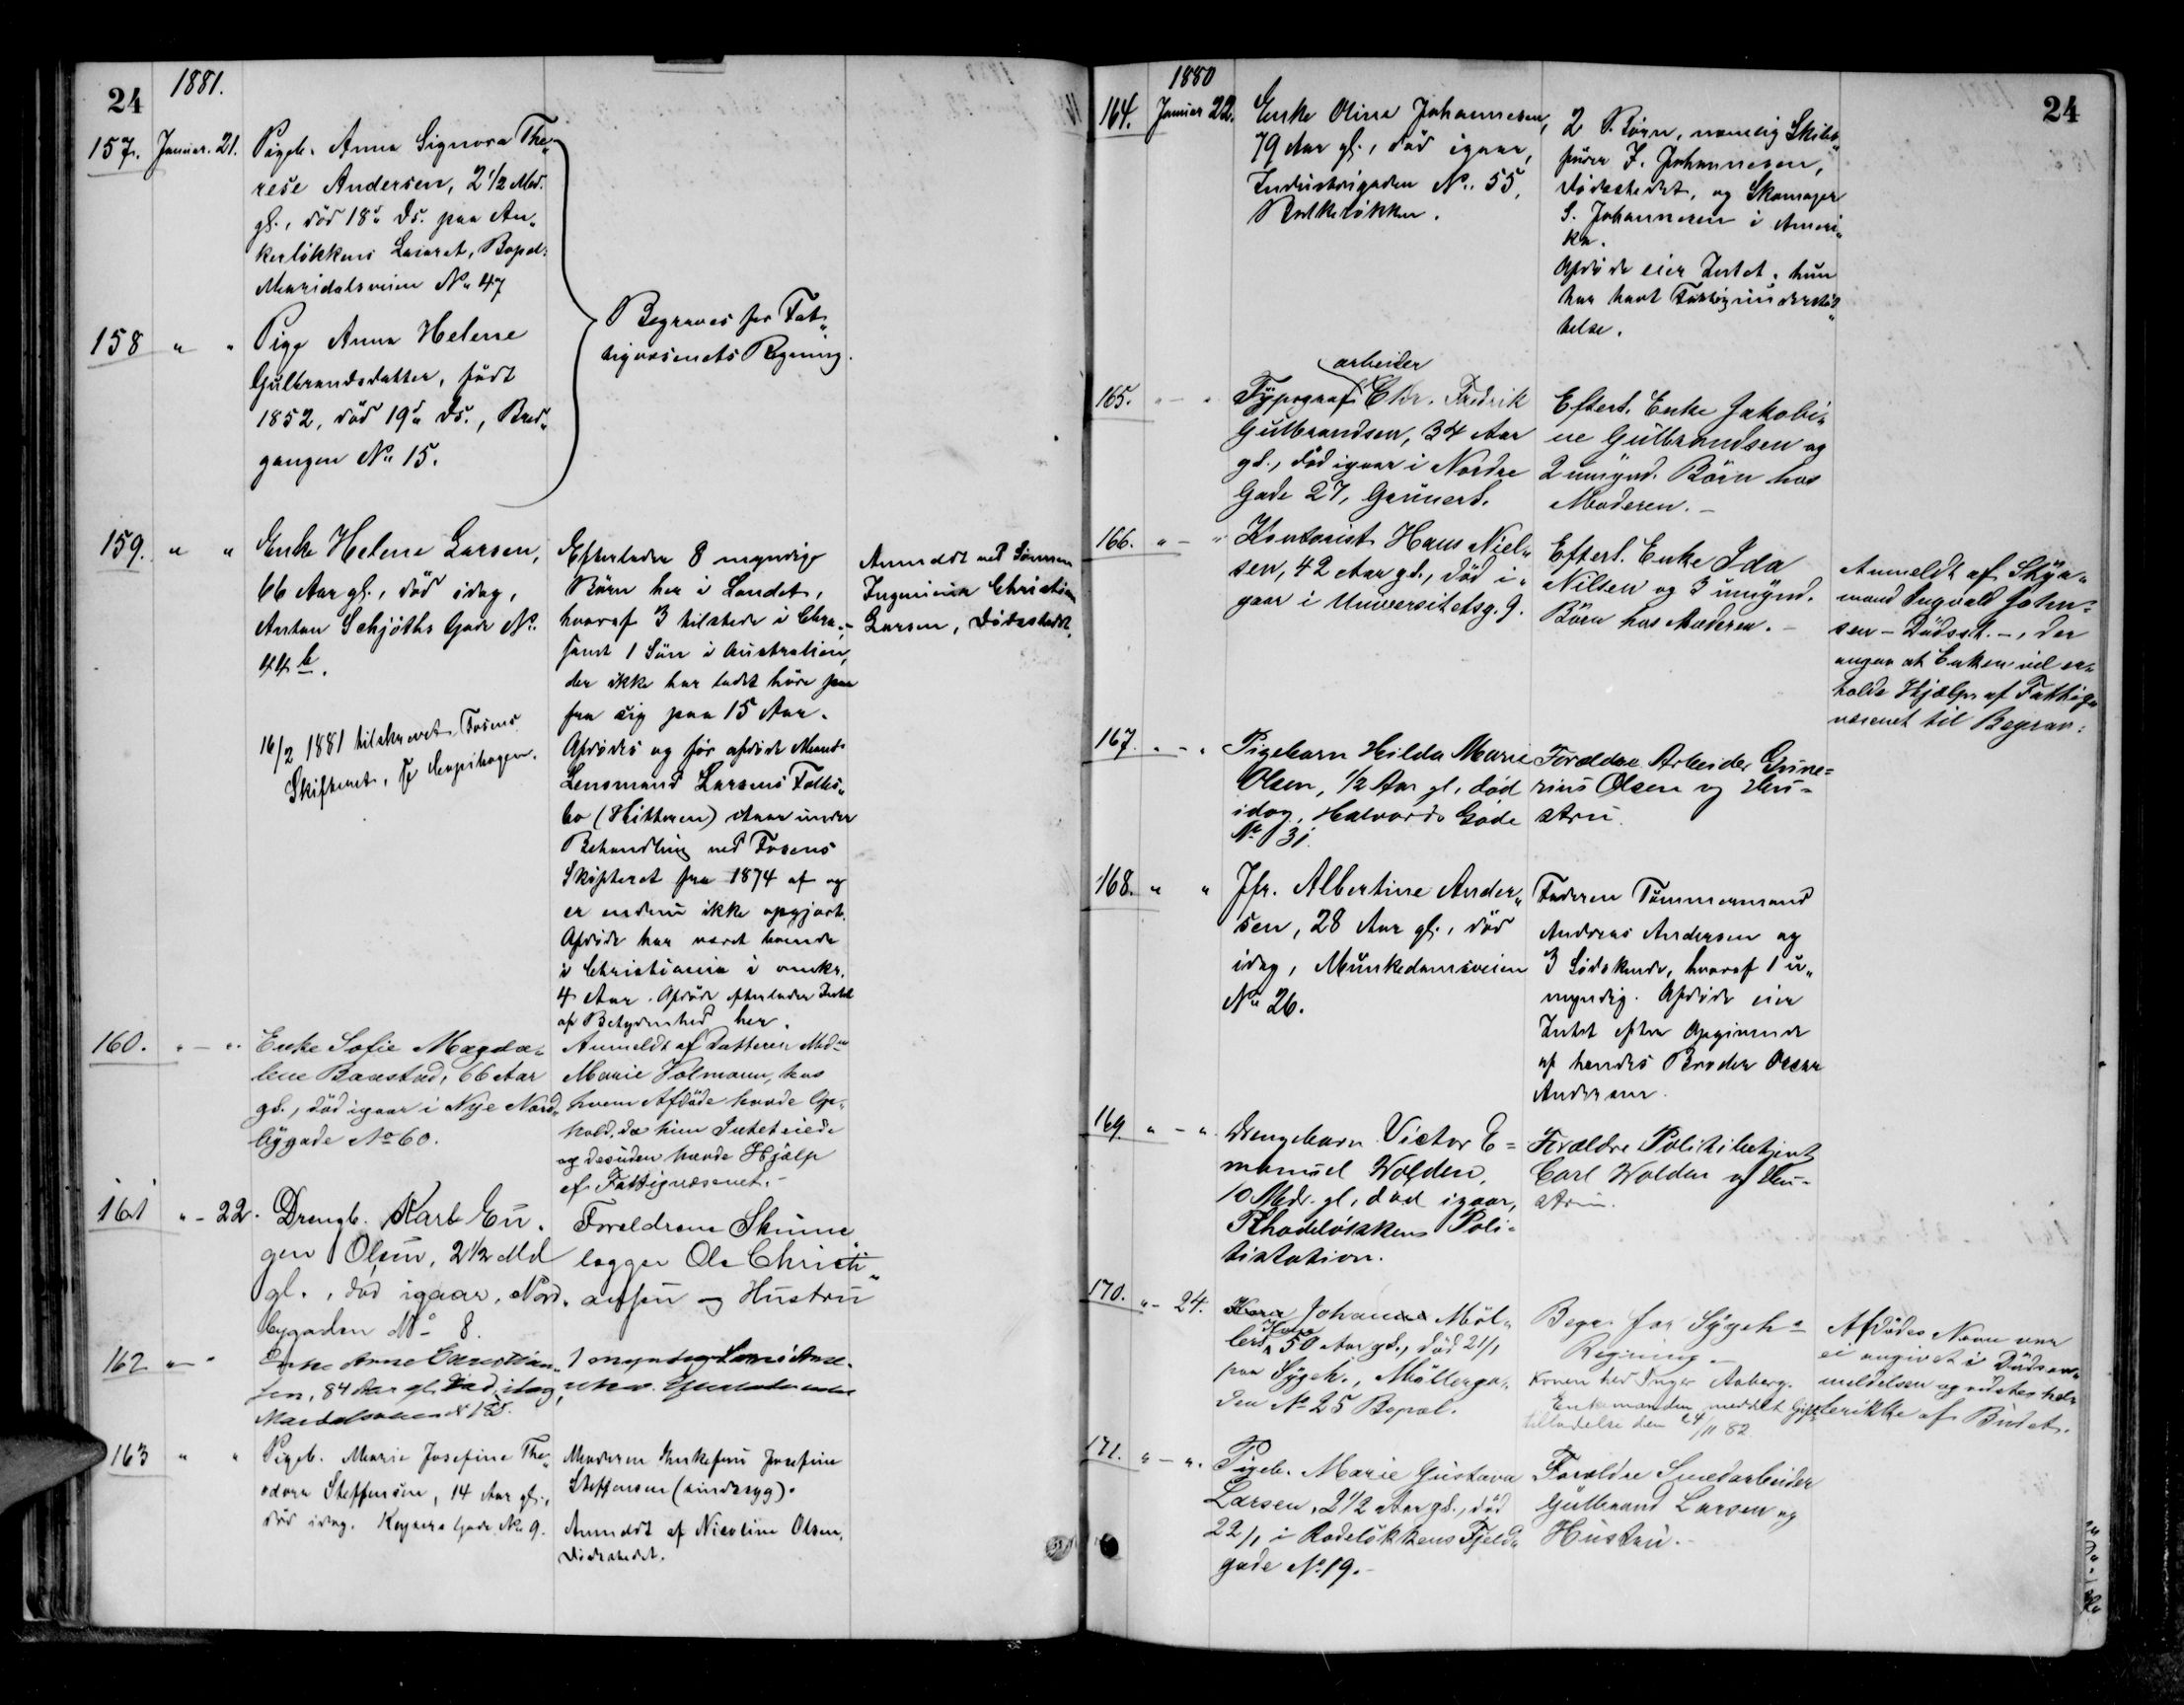 24
1881.
157. Januar. 21. Pigeb. Anna Signora The„
rese Andersen, 2 1/2 Md.
gl., död 18de ds. paa An„
kerlökkens Lazaret, Bopæl:
Maridalsveien No 47
158 „ „ Pige Anna Helene
Gulbrandsdatter, födt
1852, död 19de ds., Bred„
gangen No 15.
Begraves for Fat„
tigvæsenets Regning.
159. „ „ Enke Helene Larsen,
66 Aar gl., död idag,
Anton Schjöths Gade No.
44 b.
16/2 1881 tilskrevet Fosens
Skifteret,
Efterlader 8 myndige
Börn her i Landet,
hvoraf 3 tilstede i Chra.,
samt 1 Sön i Australien,
der ikke har ladet höre paa
fra sig paa 15 Aar.
Afdödes og för afdöde Mand
Lensmand Larsens Fælles„
bo (Hitteren) staar under
Behandling ved Fosens
Skifteret fra 1874 af og
er endnu ikke opgjort.
Afdöde har været boende
i Christiania i omkr.
4 Aar. Afdöde efterlader Intet
af Betydenhed her.
Anmeldt ved Sönnen
Ingeniör Christian
Larsen, Dödsstedet.
160. „ - „ Enke Sofie Magda„
lene Baastad, 66 Aar
gl., död igaar i Nye Nord„
bygade No 60.
Anmeldt af Datteren Mad.
Marie Holmann, hos
hvem Afdöde havde Op„
hold, da hun Intet eiede
og desuden havde Hjælp
af Fattigvæsenet.-
161 „ - 22. Drengb. Karl Eu„
gen Olsen, 2 1/2 Md
gl., död igaar, Nord„
bygaden No 8.
Foreldrene Skinne„
lægger Ole Christi„
ansen og Hustru
162 „ - „ Enke Anne Christian„
sen, 84 Aar gl. död idag,
Maridalsveien No
1 myndig
163 „ „ Pigeb. Marie Josefine The„
odora Steffensen, 14 Aar gl.,
död idag. Keysers Gade No 9.
Moderen Enkefru Josefine
Steffensen (sindssyg).
Anmeldt af Nicoline Olsen,
Dödsstedet.
1880
24
164. Januar 22. Enke Oline Johannesen,
79 Aar gl., död igaar,
Industrigaden No. 55,
Balkelökken.
2 Börn, nemlig Skibs„
förer J. Johannesen,
Dödsstedet, og Skomager
S. Johannesen i Ameri„
ka.
Afdöde eier Intet, hun
har havt Fattigunderstöt„
telse.
arbeider
165. „ - „ Typograf Chr. Fredrik
Gulbrandsen, 34 Aar
gl., död igaar i Nordre
Gade 27, Grünerl.
Efterl. Enke Jakobi„
ne Gulbrandsen og
2 umynd. Börn hos
Moderen.-
166. „ - „ Kontorist Hans Niel„
sen, 42 Aar gl., död i„
gaar i Universitetsg. 9.
Efterl. Enke Ida
Nilsen og 3 umynd.
Börn hos Moderen.-
Anmeldt af
mand Ingvald John„
sen - Dödsst. -, der
angav at Enken vil er„
holde Hjælp af Fattig„
væsenet til Begrav:
167. „ - „ Pigebarn Hilda Marie
Olsen, 1/2 Aar gl., död
idag, Halvards Gade
No 31.
Forældre Arbeider Gune=
rius Olsen og Hu-
stru.
168. „ „ Jfr. Albertine Ander„
sen, 28 Aar gl., död
idag, Munkedamsveien
No 26.
Faderen Tömmermand
Andreas Andersen og
3 Södskende, hvoraf 1 u„
myndig. Afdöde eier
Intet efter Opgivende
af hendes Broder Oscar
Andersen.
169. „ - „ Drengebarn Victor E=
manuel Wolden,
10 Mdr. gl., död igaar,
Rhodelökkens Poli-
tistation.
Forældre Politibetjent
Carl Wolden og Hu-
stru.
170. „ - 24. Johanna Möl„
lers
Kone
50 Aar gl., död 21/1
paa Sygeh., Möllerga„
den No 25 Bopæl.
Begr. for Sygeh.
Regning.-
Konen hed Inger Aaberg.
Enkemanden meddelt Gifte
tilladelse den 24/11 82
Afdödes Navn var
ei angivet i Dödsan„
meldelsen og vidstes hel„
ler ikke af Budet.
171. „ - „ Pigeb. Marie Gustava
Larsen, 2 1/2 Aar gl., död
22/1 i Rodelökkens Fjeld„
gade No 19.-
Forældre Smedarbeider
Gulbrand Larsen og
Hustru.-